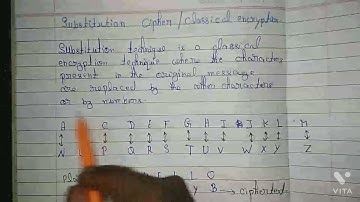 Substitution Cipher / Classical encryption
Substitution technique is a classical
encryption technique where the characters
present in the original message
are replaced by the other characters
or by numbers.
A C D E F G H I J K L M
N P Q R S T U V W X Y Z
L O
Y B → ciphertext
VITA